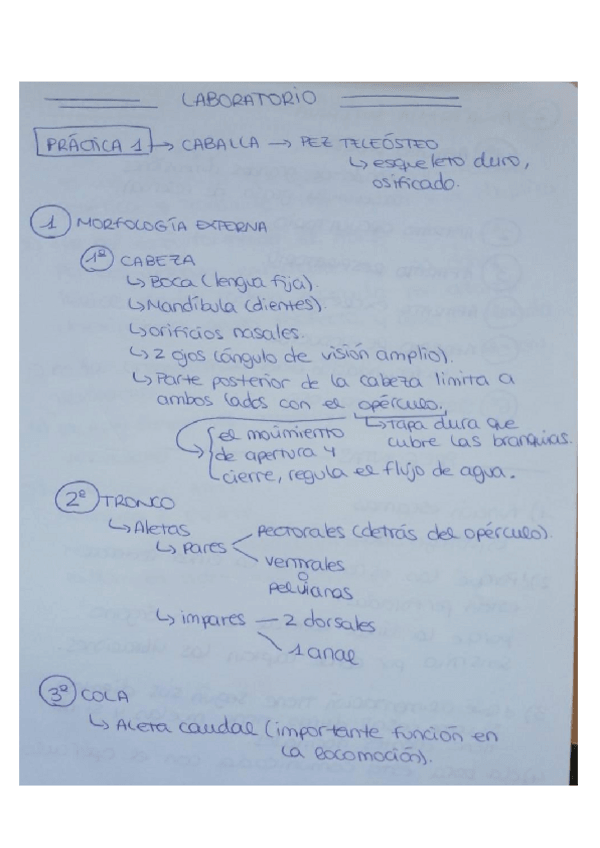 LABORATORIO
PRÁCTICA 1 → CABALLA → PEZ TELEÓSTEO
↳ esqueleto duro,
osificado.
1 MORFOLOGÍA EXTERNA
1º CABEZA
↳ Boca (lengua fija).
↳ Mandíbula (dientes).
↳ orificios nasales.
↳ 2 ojos (ángulo de visión amplio).
↳ Parte posterior de la cabeza limita a
ambos lados con el opérculo.
↳ tapa dura que
cubre las branquias.
el movimiento
de apertura y
cierre, regula el flujo de agua.
2º TRONCO
↳ Aletas
↳ pares
pectorales (detrás del opérculo).
ventrales
o
pelvianas
↳ impares — 2 dorsales
1 anal
3º COLA
↳ Aleta caudal (importante función en
la locomoción).